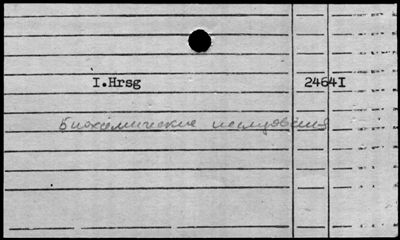 I.Hrsg 2464I
Биохимические исследования